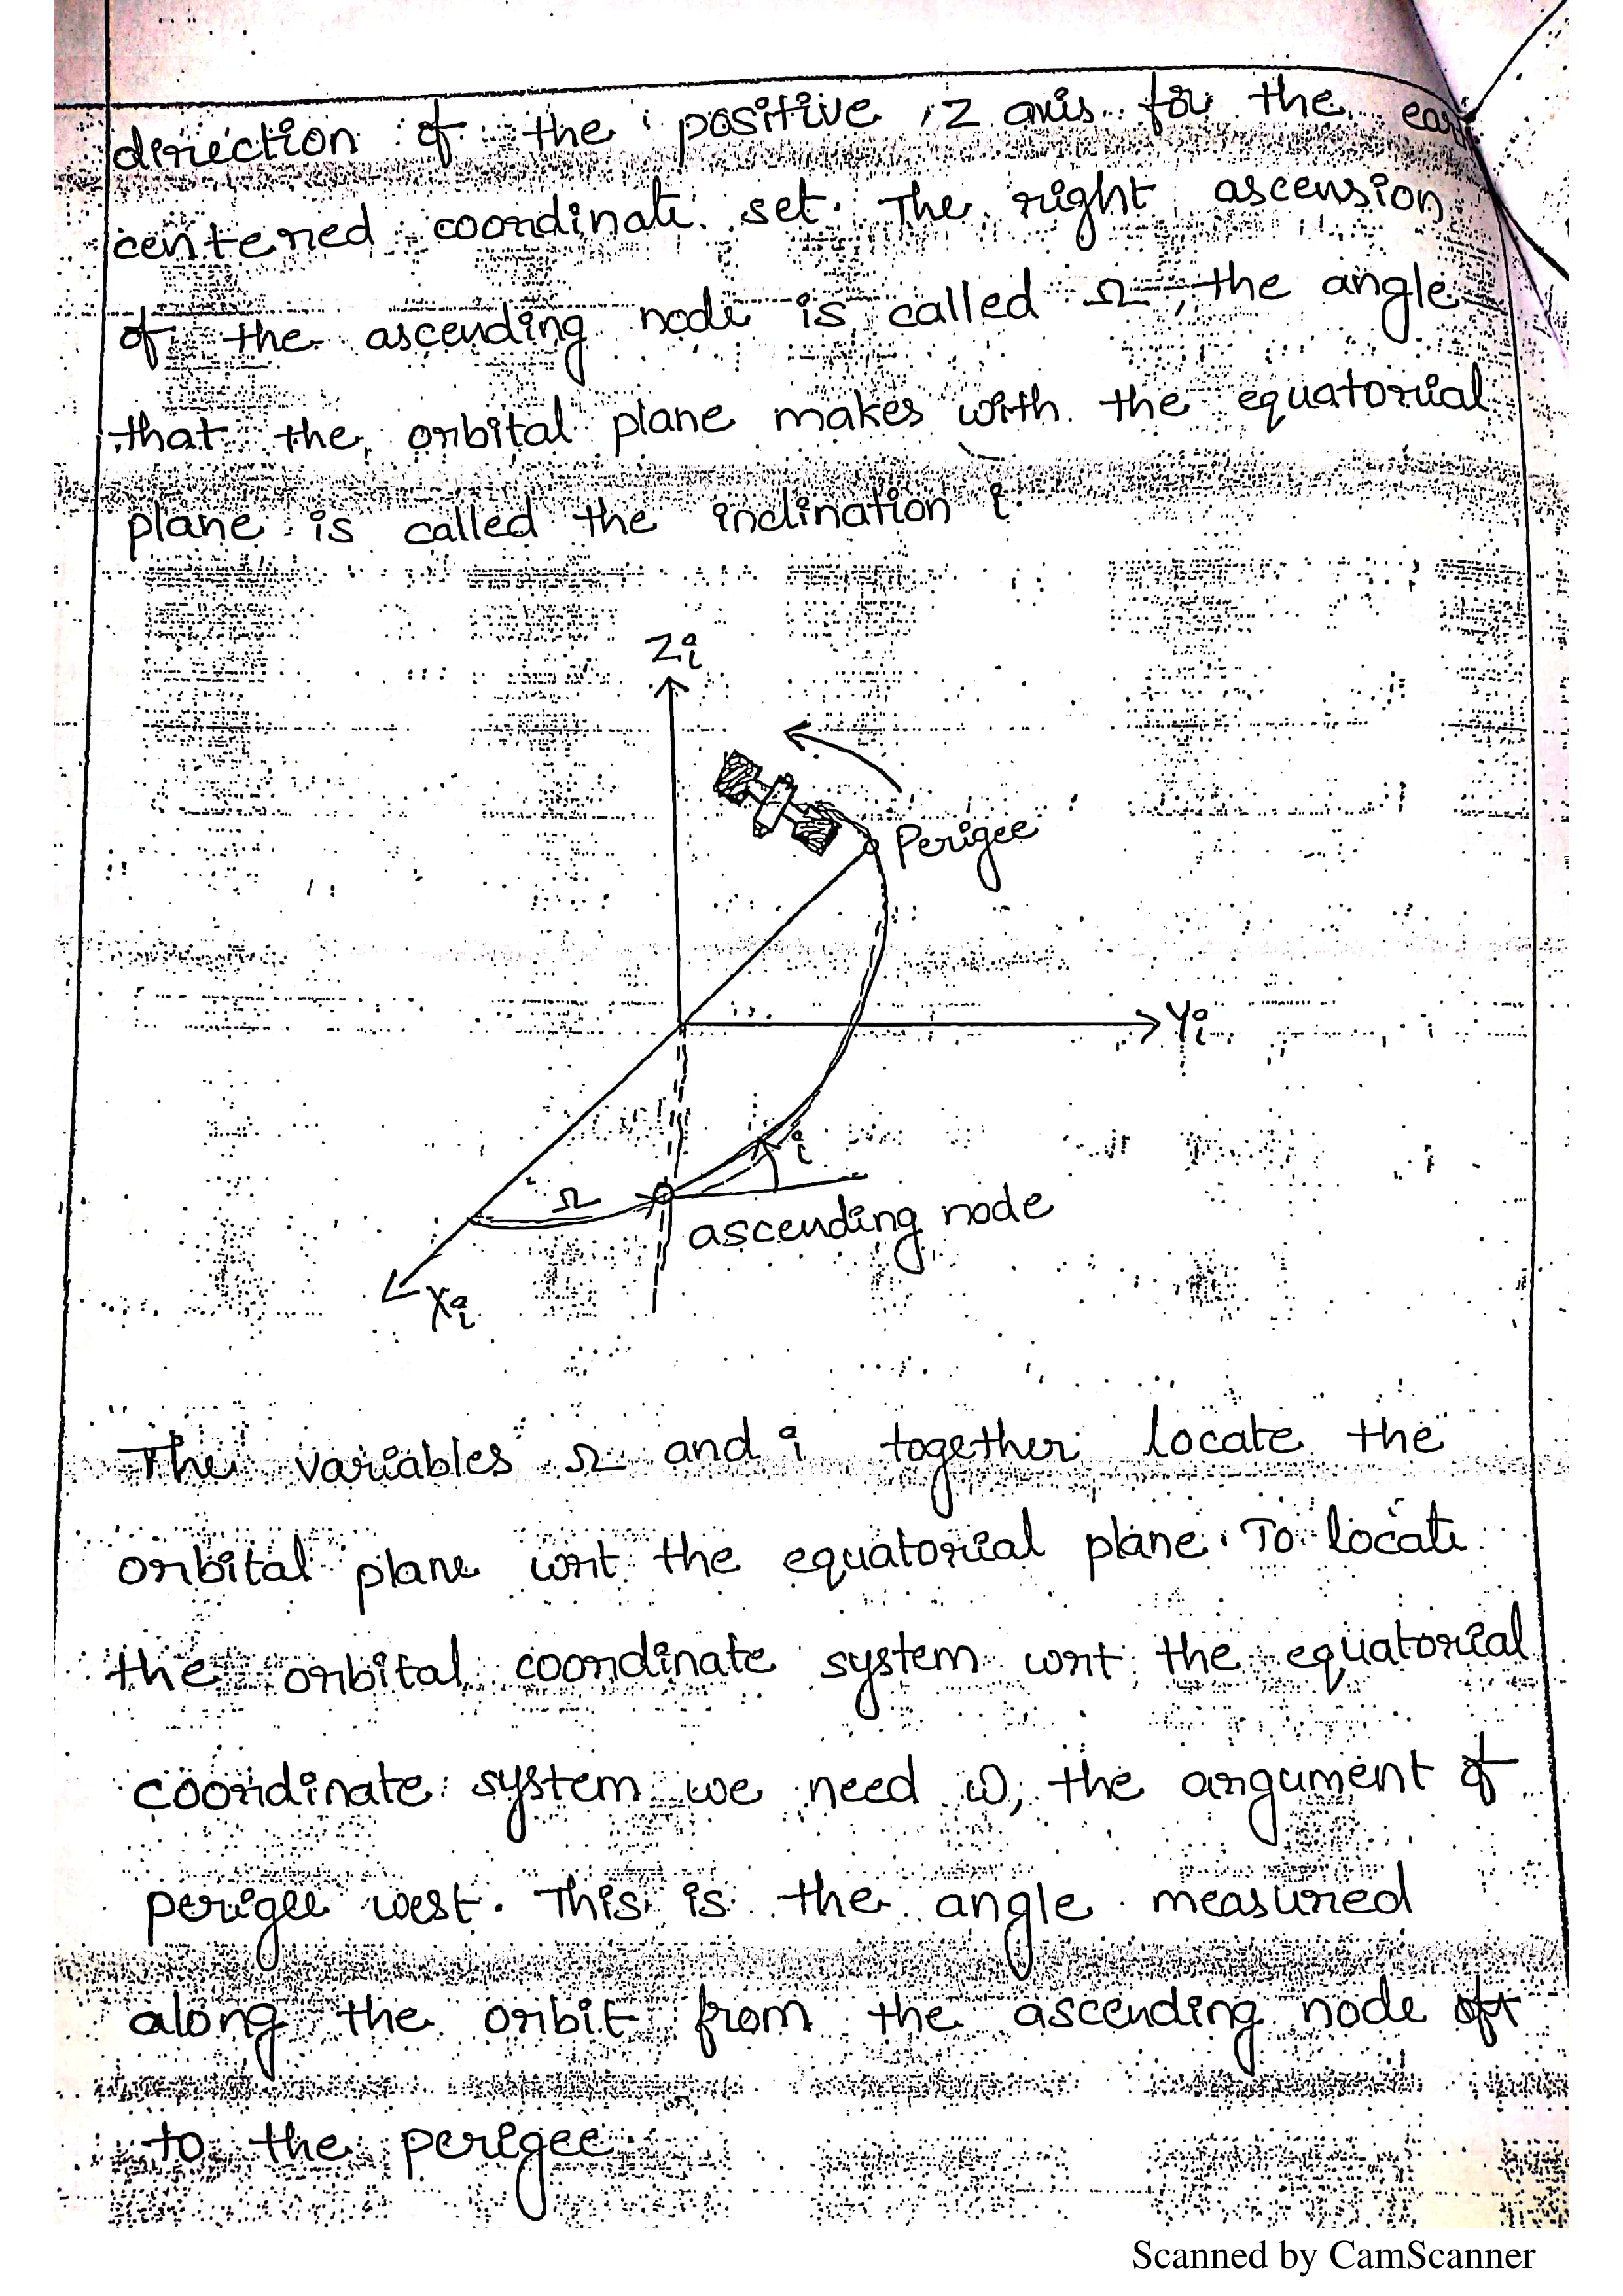 direction of the positive z axis for the ear
centered coordinate set. The right ascension
of the ascending node is called Ω, the angle
that the orbital plane makes with the equatorial
plane is called the inclination i.
Zi
Perigee
Yi
i
Ω
ascending node
Xi
The variables Ω and i together locate the
orbital plane wrt the equatorial plane. To locate
the orbital coordinate system wrt the equatorial
coordinate system we need ω, the argument of
perigee west. This is the angle measured
along the orbit from the ascending node
to the perigee.
Scanned by CamScanner